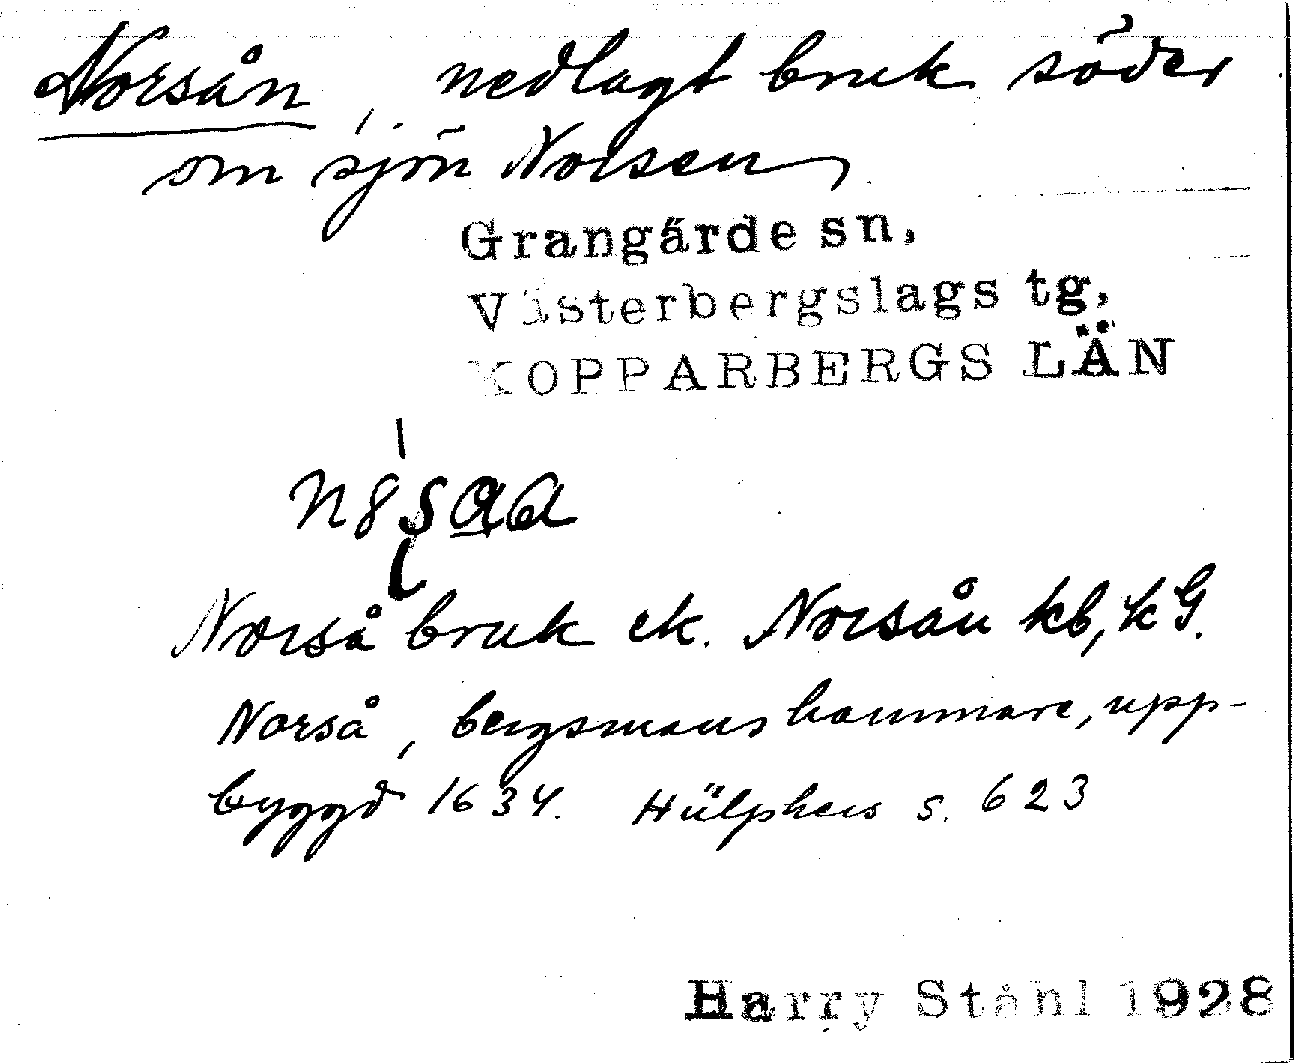 Norsån, nedlagt bruk söder
om sjön Norsen
Grangärde sn,
Västerbergslags tg,
KOPPARBERGS LÄN
Norså bruk ek. Norsån kb, k G.
Norså, bergsmans hammare, upp-
byggd 1634. Hülphers s. 623
Harry Ståhl 1928